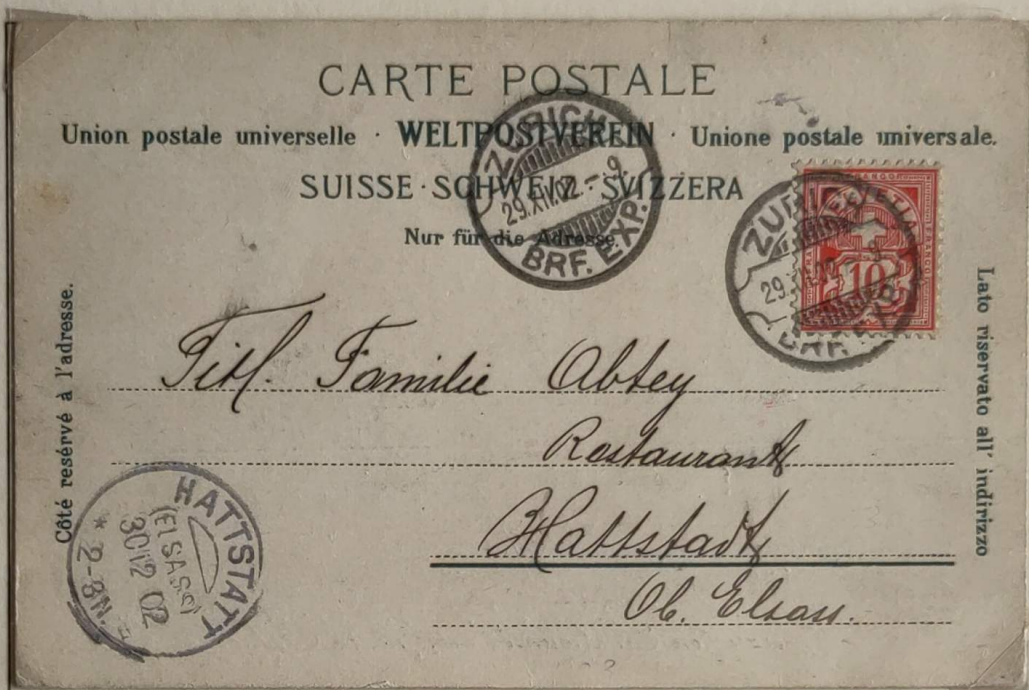 CARTE POSTALE
Union postale universelle · WELTPOSTVEREIN · Unione postale universale.
SUISSE · SCHWEIZ · SVIZZERA
Nur für die Adresse
ZÜRICH
29.XII.02.-9.
BRF. EXP.
HELVETIA
FRANCO
10
ZÜRICH
29.XII.02.-9.
BRF. EXP.
Côté resérvé à l'adresse.
Lato riservato all' indirizzo
Titl. Familie Abtey
Restaurant
Hattstadt
Ob. Elsass.
HATTSTATT
(ELSASS)
30 12 02
* 2-3N.